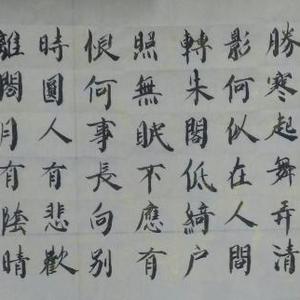 勝寒起舞弄清
影何似在人間
轉朱閣低綺户
照無眠不應有
恨何事長向别
時圓人有悲歡
離閤月有陰晴